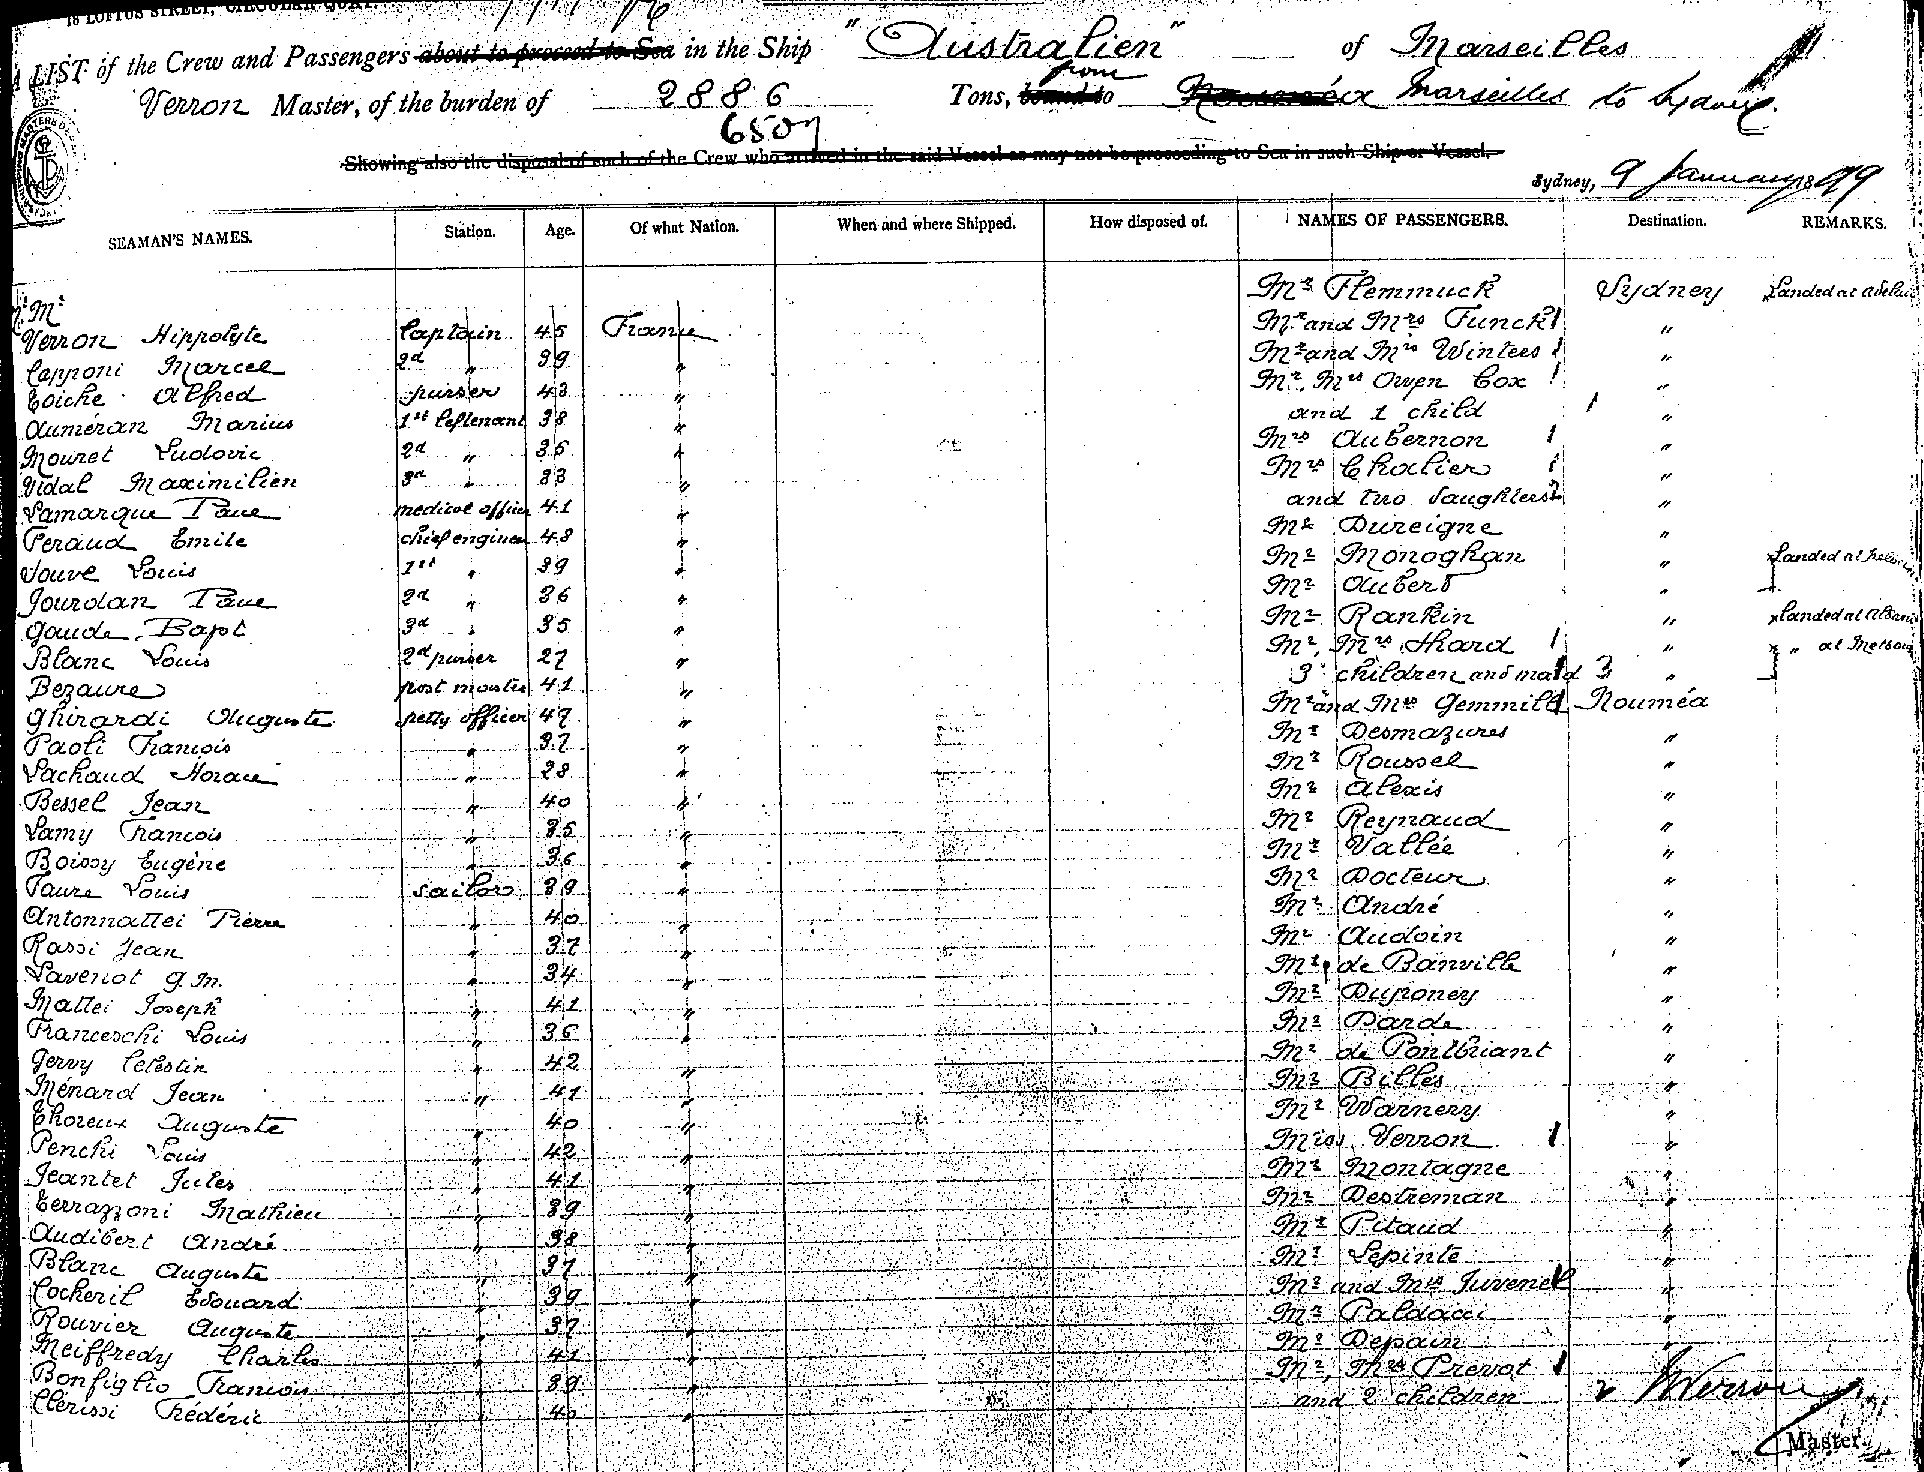 18 LOFTUS STREET, CIRCULAR QUAY.
LIST of the Crew and Passengers about to proceed to Sea in the Ship "Australien" of Marseilles
from
Verron Master, of the burden of 2886 Tons, bound to Nouméa Marseilles to Sydney.
6507
Showing also the disposal of each of the Crew who arrived in the said Vessel as may not be proceeding to Sea in such Ship or Vessel.
Sydney, 9 January 1899
SEAMAN'S NAMES. Station. Age. Of what Nation. When and where Shipped. How disposed of. NAMES OF PASSENGERS. Destination. REMARKS.
Mr Flemmuck Sydney Landed at
Mr
Verron Hippolyte Captain 45 France Mr and Mrs Funck 1 "
Capponi Marcel 2d " 39 " Mr and Mrs Winters 1 "
Eoiche Alfred purser 43 " Mr, Mrs Owen Cox 1 "
Auméran Marius 1st leftenant 38 " and 1 child 1 "
Mouret Ludovic 2d " 35 " Mrs Aubernon 1 "
Vidal Maximilien 3d " 33 " Mrs Chalier 1 "
Lamarque Paul medical officer 41 " and two daughters 2 "
Peraud Emile chief engineer 48 " Mr Dureigne "
Jouve Louis 1st " 39 " Mr Monoghan " Landed at
Jourdan Paul 2d " 36 " Mr Aubert "
Gaude Bapt 3d " 35 " Mr Rankin " Landed at Albany
Blanc Louis 2d purser 27 " Mr, Mrs Shard 1 " " at Melbourne
Bezaure post master 41 " 3 children and maid 1 3 "
Ghirardi Auguste petty officer 47 " Mr and Mrs Gemmill 1 Nouméa
Paoli François " 37 " Mr Desmazures "
Lachaud Horace " 28 " Mr Roussel "
Bessel Jean " 40 " Mr Alexis "
Lamy François " 35 " Mr Reynaud "
Boissy Eugène " 36 " Mr Vallée "
Faure Louis sailors 39 " Mr Docteur "
Antonnattei Pierre " 40 " Mr André "
Rassi Jean " 37 " Mr Audoin "
Lavenot G. M. " 34 " Mr de Banville "
Mattei Joseph " 41 " Mr Duponey "
Franceschi Louis " 36 " Mr Darde "
Gervy Célestin " 42 " Mr de Pontbriant "
Ménard Jean " 41 " Mr Billes "
Thoreux Auguste " 40 " Mr Warnery "
Penchi Louis " 42 " Miss Verron 1 "
Jeantet Jules " 41 " Mr Montagne "
Terrazzoni Mathieu " 39 " Mr Destreman "
Audibert André " 38 " Mr Pitaud "
Blanc Auguste " 37 " Mr Lepinte "
Cocheril Edouard " 39 " Mr and Mrs Juvenel 1 "
Rouvier Auguste " 37 " Mr Paldacci "
Meiffredy Charles " 41 " Mr Depain "
Bonfiglio François " 39 " Mr, Mrs Prevot 1
Clérissi Frédéric " 40 " and 2 children 2 HVerron
Master.